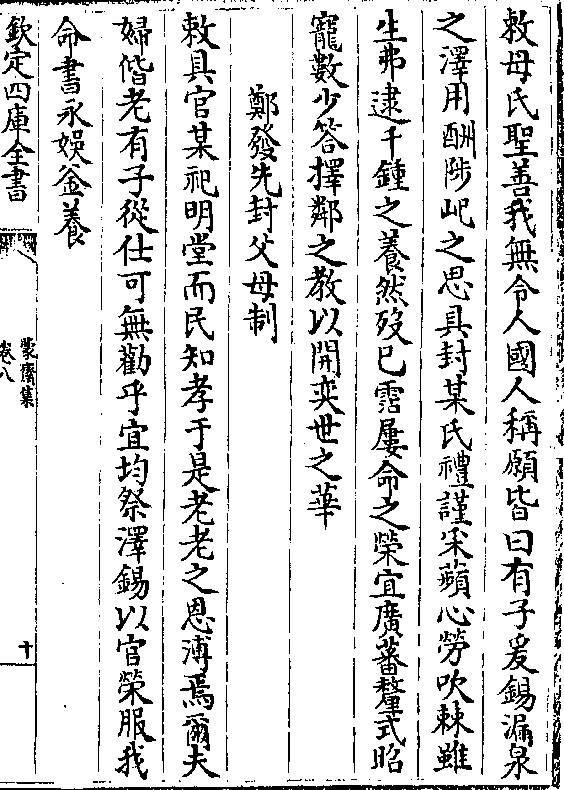 敕母氏聖善我無令人國人稱願皆曰有子爰錫漏泉
之澤用酬陟屺之思具封某氏禮謹采蘋心勞吹棘雖
生弗逮千鍾之養然歿已霑屢命之榮宜廣蕃釐式昭
寵數少答擇鄰之教以開奕世之華
鄭發先封父母制
敕具官某祀明堂而民知孝于是老老之恩溥焉爾夫
婦偕老有子從仕可無勸乎宜均祭澤錫以官榮服我
命書永娛釡養
欽定四庫全書
蒙齋集
卷八
十